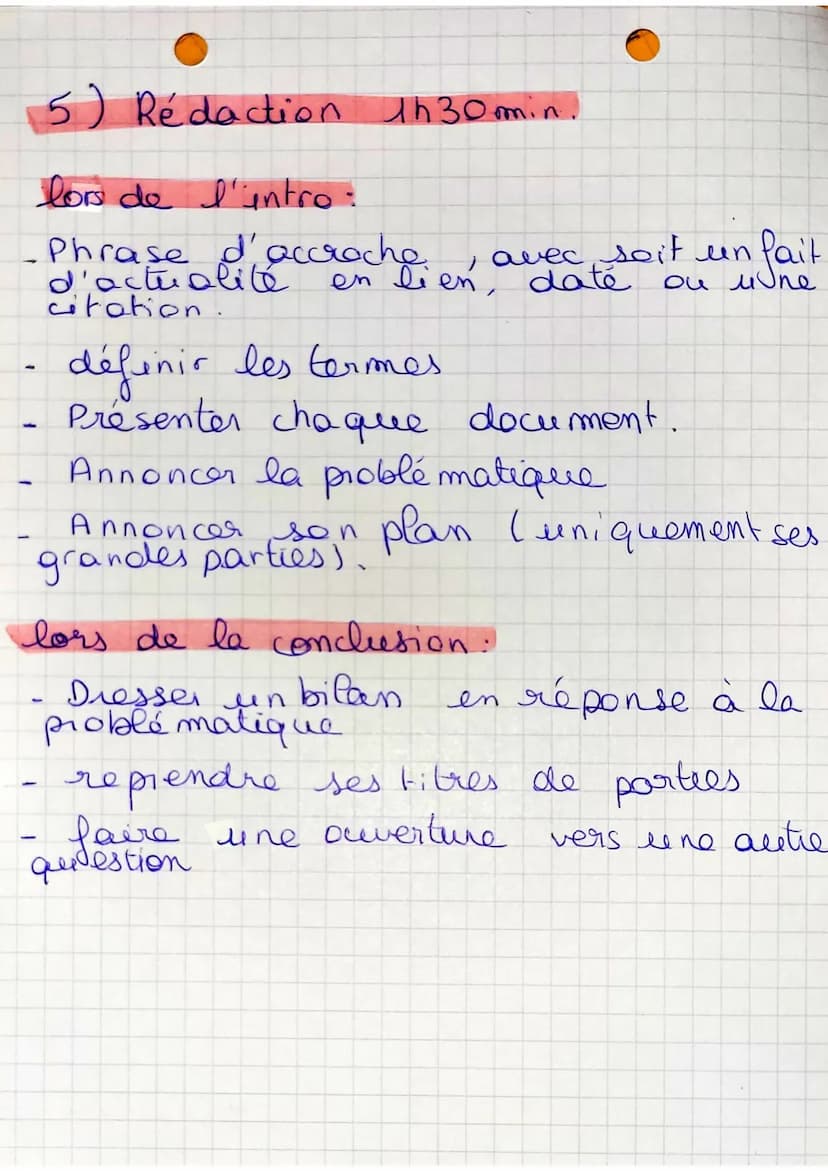 5) Rédaction 1h30min.
lors de l'intro :
- Phrase d'accroche, avec soit un fait
d'actualité en lien, daté ou une
citation.
- définir les termes
- Présenter chaque document.
- Annoncer la problématique
- Annoncer son plan (uniquement ses
grandes parties).
lors de la conclusion :
- Dresser un bilan en réponse à la
problématique
- reprendre ses titres de parties
- faire une ouverture vers une autre
question